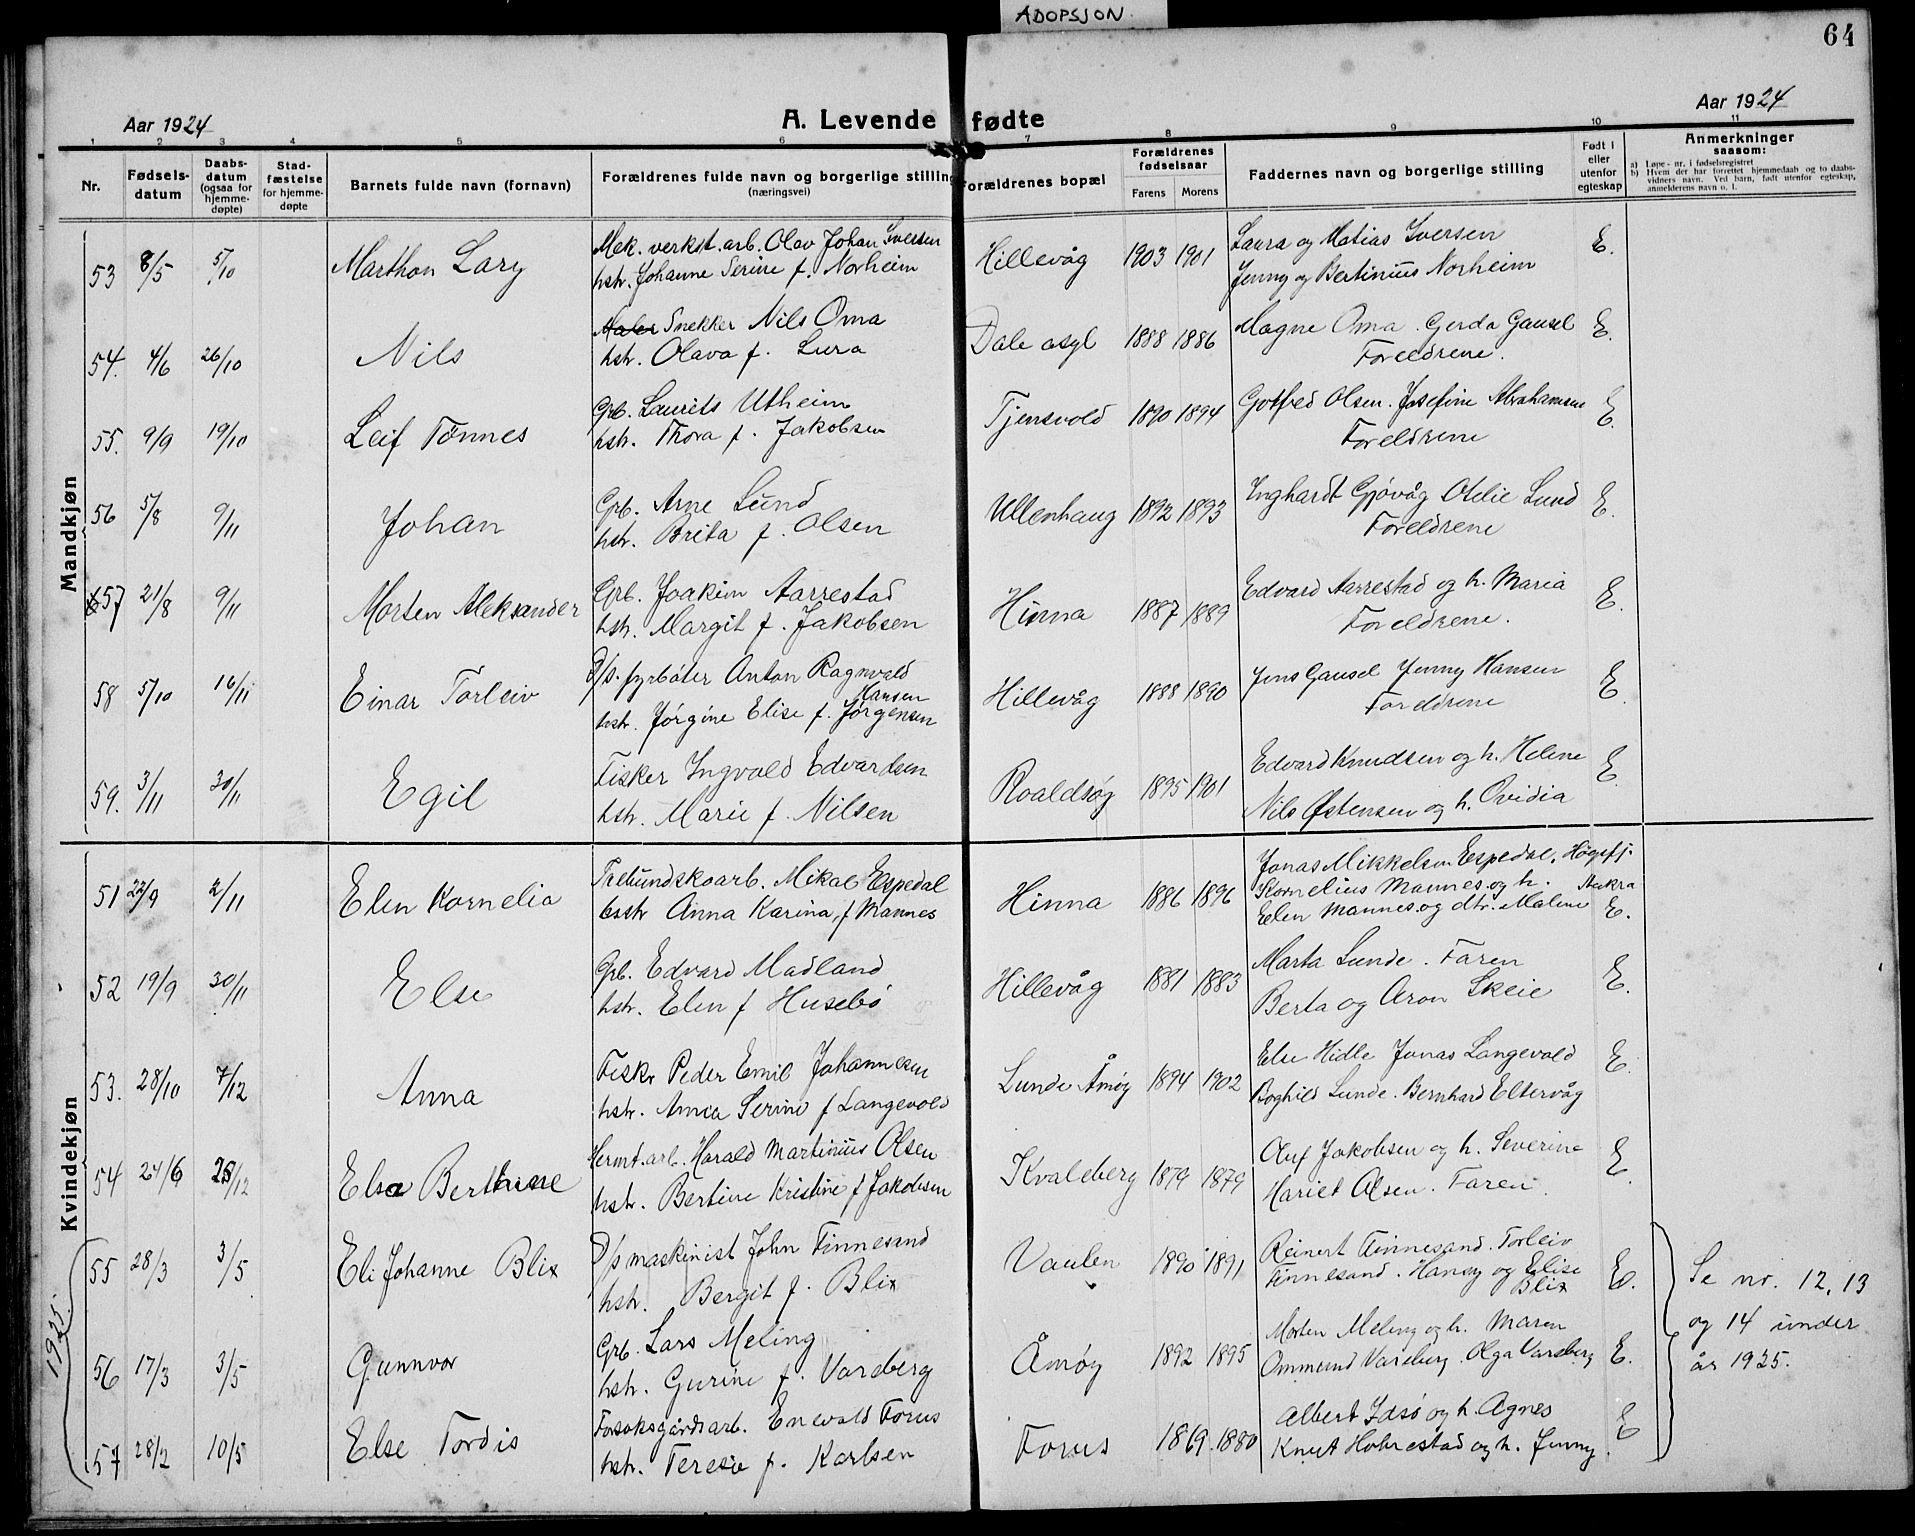 ADOPSJON.
64
Aar 1924
A. Levende fødte
Aar 1924
1 2 3 4 5 6 7 8 9 10 11
Nr.
Fødsels-
datum
Daabs-
datum
(ogsaa for
hjemme-
døpte)
Stad-
fæstelse
for hjemme-
døpte
Barnets fulde navn (fornavn)
Forældrenes fulde navn og borgerlige stilling
(næringsvei)
Forældrenes bopæl
Forældrenes
fødselsaar
Farens Morens
Faddernes navn og borgerlige stilling
Født i
eller
utenfor
egteskap
Anmerkninger
saasom:
a) Løpe-nr. i fødselsregistret
b) Hvem der har forrettet hjemmedaab og to daabs-
vidners navn. Ved barn, født utenfor egteskap,
anmelderens navn o. l.
Mandkjøn
53 8/5 5/10 Marthon Lary Mek. verkst. arb. Olav Johan Iversen
hstr. Johanne Serine f. Norheim
Hillevåg 1903 1901 Laura og Matias Iversen
Jenny og Bertinius Norheim E.
54. 4/6 26/10 Nils Maler Snekker Nils Oma
hstr. Olava f. Lura
Dale asyl 1888 1886 Magne Oma. Gerda Gausel
Foreldrene. E.
55. 9/9 19/10 Leif Tönnes Grb. Laurits Utheim
hstr. Thora f. Jakobsen
Tjensvold 1890 1894 Gotfred Olsen. Josefine Abrahamsen
Foreldrene E.
56 5/8 9/11 Johan Grb. Arne Lund
hstr. Brita f. Olsen
Ullenhaug 1892 1893 Inghardt Gjøvåg Otelie Lund
Foreldrene E.
57 21/8 9/11 Morten Aleksander Grb. Joakim Aarrestad
hstr. Margit f. Jakobsen
Hinna 1887 1889 Edvard Aarrestad og h. Maria
Foreldrene. E.
58 5/10 16/11 Einar Torleiv D/s. fyrbøter Anton Ragnvald
Hansen
hstr. Jørgine Elise f. Jørgensen
Hillevåg 1888 1890 Jens Gausel Jenny Hansen
Foreldrene E.
59. 3/11 30/11 Egil Fisker Ingvald Edvardsen
hstr. Marie f. Nilsen
Roaldsøy 1895 1901 Edvard Knudsen og h. Helene
Nils Østensen og h. Ovidia E.
Kvindekjøn
51 22/9 2/11 Elen Kornelia Trebundskoarb. Mikal Espedal
hstr Anna Karina f Mannes
Hinna 1886 1896 Jonas Mikkelsen Espedal, Høgsfj.
Kornelius Mannes og h. Aukra
Elen Mannes og dtr. Malene E.
52 19/9 30/11 Else Grb. Edvard Madland
hstr. Elen f Husebø
Hillevåg 1881 1883 Marta Lunde. Faren
Berta og Aron Skeie E.
53. 28/10 7/12 Anna Fiskr Peder Emil Johannesen
hstr. Anna Serine f Langevold
Lunde Åmøy 1894 1902 Else Hidle Jonas Langevold
Boghild Lunde. Bernhard Eltervåg E.
54 24/6 /12 Elsa Berthine Hermt. arb. Harald Martinius Olsen
hstr. Bertine Kristine f Jakobsen
Kvaleberg 1879 1879 Oluf Jakobsen og h. Severine
Hariet Olsen. Faren. E.
1925.
55 28/3 3/5 Eli Johanne Blix D/s maskinist John Finnesand
hstr. Bergit f. Blix
Vaulen 1890 1891 Reinert Finnesand. Torleiv
Finnesand. Hansy og Elise
Blix E.
56 17/3 3/5 Gunnvor Grb. Lars Meling
hstr. Gurine f. Vareberg
Åmøy 1892 1895 Morten Meling og h. Maren
Ommund Vareberg. Olga Vareberg E.
57 28/2 10/5 Else Tordis Forsøksgårdsarb. Enevald Forus
hstr. Teresie f. Karlsen
Forus 1869 1880 Albert Idsø og h. Agnes
Knut Hobrestad og h. Jenny. E
Se nr. 12, 13
og 14 under
år 1925.